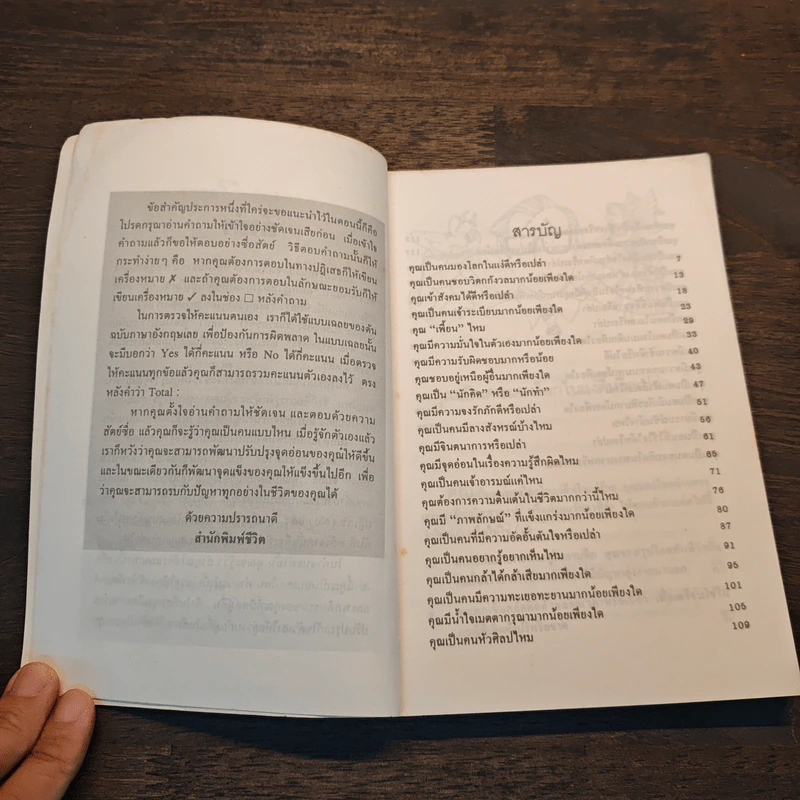 ข้อสำคัญประการหนึ่งที่ใคร่จะขอแนะนำไว้ในตอนนี้ก็คือ
โปรดกรุณาอ่านคำถามให้เข้าใจอย่างชัดเจนเสียก่อน เมื่อเข้าใจ
คำถามแล้วก็ขอให้ตอบอย่างซื่อสัตย์ วิธีตอบคำถามนั้นก็ให้
กระทำง่ายๆ คือ หากคุณต้องการตอบในทางปฏิเสธก็ให้เขียน
เครื่องหมาย ✗ และถ้าคุณต้องการตอบในลักษณะยอมรับก็ให้
เขียนเครื่องหมาย ✓ ลงในช่อง □ หลังคำถาม
ในการตรวจให้คะแนนตนเอง เราก็ได้ใช้แบบเฉลยของต้น
ฉบับภาษาอังกฤษเลย เพื่อป้องกันการผิดพลาด ในแบบเฉลยนั้น
จะมีบอกว่า Yes ได้กี่คะแนน หรือ No ได้กี่คะแนน เมื่อตรวจ
ให้คะแนนทุกข้อแล้วคุณก็สามารถรวมคะแนนตัวเองลงไว้ ตรง
หลังคำว่า Total :
หากคุณตั้งใจอ่านคำถามให้ชัดเจน และตอบด้วยความ
สัตย์ซื่อ แล้วคุณก็จะรู้ว่าคุณเป็นคนแบบไหน เมื่อรู้จักตัวเองแล้ว
เราก็หวังว่าคุณจะสามารถพัฒนาปรับปรุงจุดอ่อนของคุณให้ดีขึ้น
และในขณะเดียวกันก็พัฒนาจุดแข็งของคุณให้แข็งขึ้นไปอีก เพื่อ
ว่าคุณจะสามารถรบกับปัญหาทุกอย่างในชีวิตของคุณได้
ด้วยความปรารถนาดี
สำนักพิมพ์ชีวิต
สารบัญ
คุณเป็นคนมองโลกในแง่ดีหรือเปล่า 7
คุณเป็นคนชอบวิตกกังวลมากน้อยเพียงใด 13
คุณเข้าสังคมได้ดีหรือเปล่า 18
คุณเป็นคนเจ้าระเบียบมากน้อยเพียงใด 23
คุณ “เพี้ยน” ไหม 29
คุณมีความมั่นใจในตัวเองมากน้อยเพียงใด 33
คุณมีความรับผิดชอบมากหรือน้อย 40
คุณชอบอยู่เหนือผู้อื่นมากเพียงใด 43
คุณเป็น “นักคิด” หรือ “นักทำ” 47
คุณมีความจงรักภักดีหรือเปล่า 51
คุณเป็นคนมีลางสังหรณ์บ้างไหม 56
คุณมีจินตนาการหรือเปล่า 61
คุณมีจุดอ่อนในเรื่องความรู้สึกผิดไหม 65
คุณเป็นคนเจ้าอารมณ์แค่ไหน 71
คุณต้องการความตื่นเต้นในชีวิตมากกว่านี้ไหม 76
คุณมี “ภาพลักษณ์” ที่แข็งแกร่งมากน้อยเพียงใด 80
คุณเป็นคนที่มีความอัดอั้นตันใจหรือเปล่า 87
คุณเป็นคนอยากรู้อยากเห็นไหม 91
คุณเป็นคนกล้าได้กล้าเสียมากเพียงใด 95
คุณเป็นคนมีความทะเยอทะยานมากน้อยเพียงใด 101
คุณมีน้ำใจเมตตากรุณามากน้อยเพียงใด 105
คุณเป็นคนหัวศิลปไหม 109